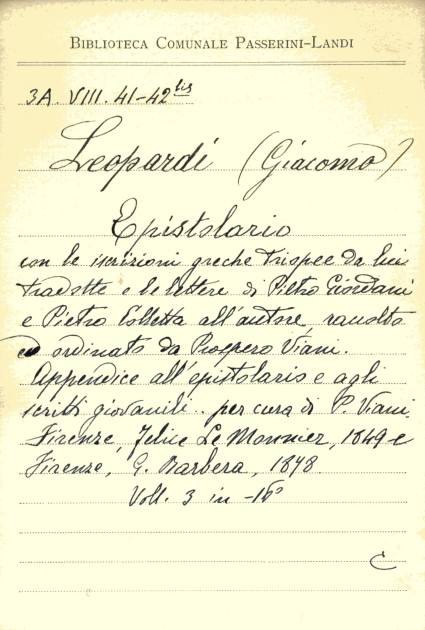 BIBLIOTECA COMUNALE PASSERINI-LANDI
3A. VIII. 41-42 bis
Leopardi (Giacomo)
Epistolario
con le iscrizioni greche triopee da lui
tradotte e le lettere di Pietro Giordani
e Pietro Colletta all'autore, raccolto
ed ordinato da Prospero Viani.
Appendice all'epistolario e agli
scritti giovanili.. per cura di P. Viani.
Firenze, Felice Le Monnier, 1849 e
Firenze, G. Barbera, 1878.
Voll. 3 in -16°
C